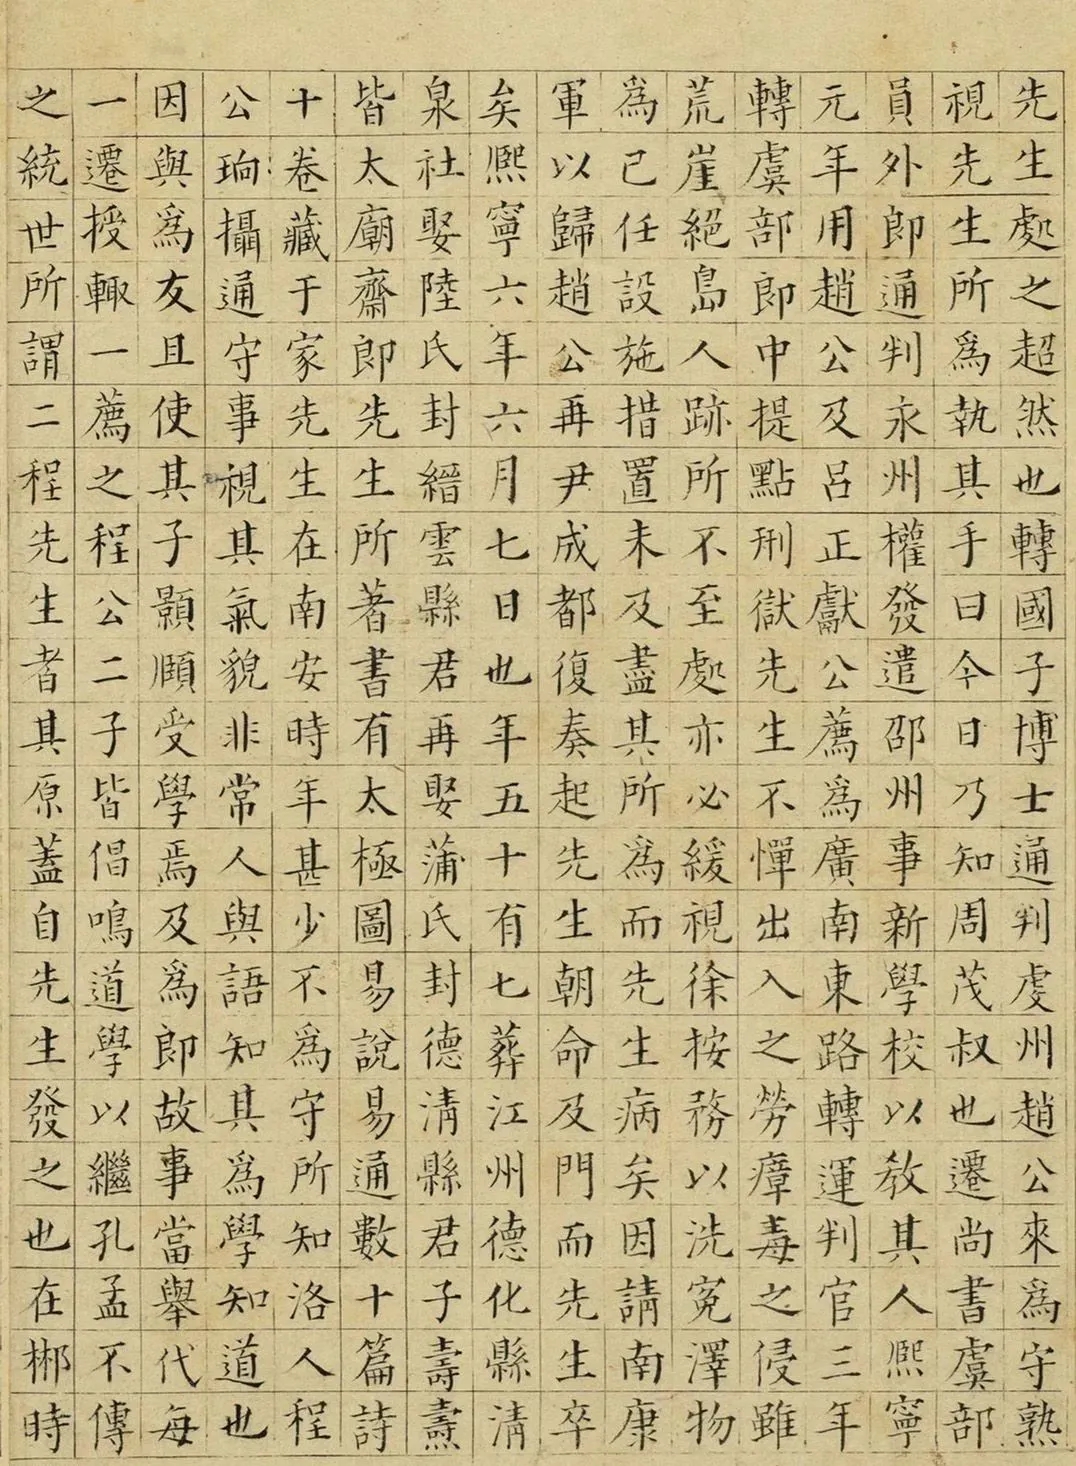 先生處之超然也轉國子博士通判虔州趙公來為守熟
視先生所爲執其手曰今日乃知周茂叔也遷尚書虞部
員外郎通判永州權發遣邵州事新學校以教其人熙寧
元年用趙公及呂正獻公薦爲廣南東路轉運判官三年
轉虞部郎中提點刑獄先生不憚出入之勞瘴毒之侵雖
荒崖絕島人跡所不至處亦必緩視徐按務以洗冤澤物
為己任設施措置未及盡其所爲而先生病矣因請南康
軍以歸趙公再尹成都復奏起先生朝命及門而先生卒
矣熙寧六年六月七日也年五十有七葬江州德化縣清
泉社娶陸氏封縉雲縣君再娶蒲氏封德清縣君子壽燾
皆太廟齋郎先生所著書有太極圖易說易通數十篇詩
十卷藏于家先生在南安時年甚少不爲守所知洛人程
公珦攝通守事視其氣貌非常人與語知其爲學知道也
因與爲友且使其子顥頤受學焉及爲郎故事當舉代每
一遷授輒一薦之程公二子皆倡鳴道學以繼孔孟不傳
之統世所謂二程先生者其原蓋自先生發之也在郴時